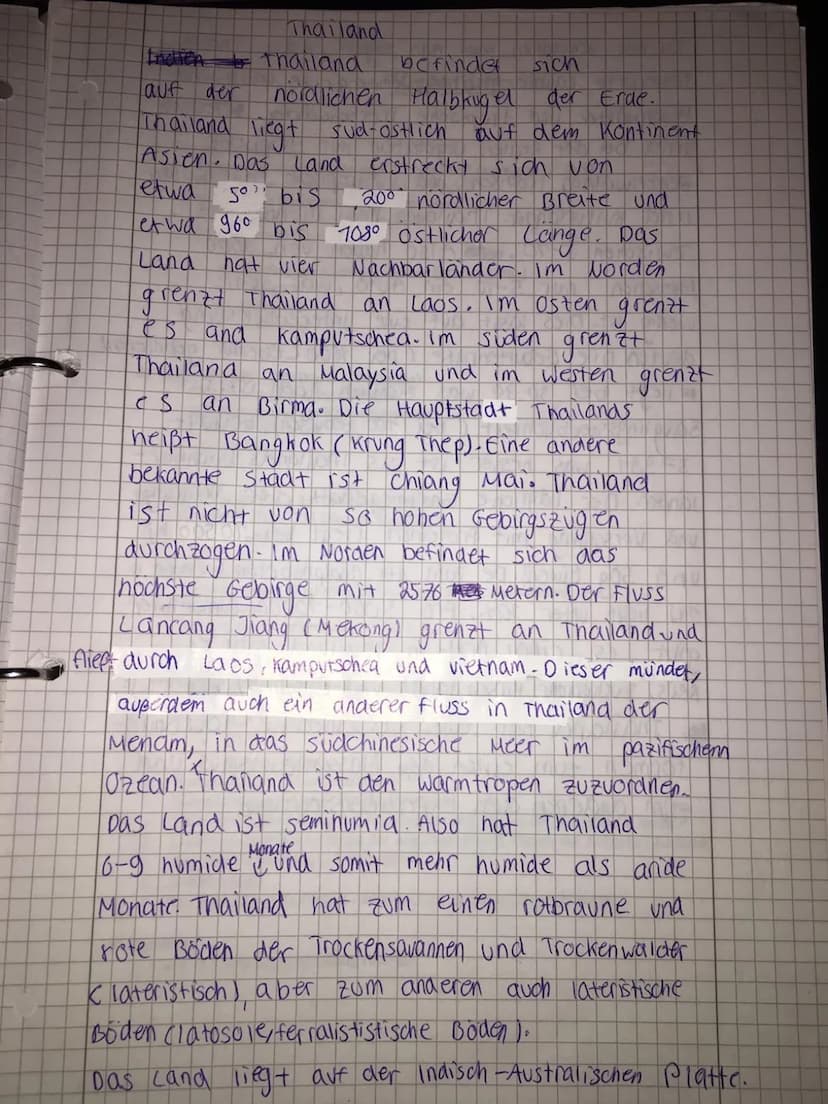 Thailand
Thailand befindet sich
auf der nördlichen Halbkugel der Erde.
Thailand liegt süd-östlich auf dem Kontinent
Asien. Das Land erstreckt sich von
etwa 5° bis 20° nördlicher Breite und
etwa 96° bis 108° östlicher Länge. Das
Land hat vier Nachbarländer. Im Norden
grenzt Thailand an Laos. Im Osten grenzt
es and Kamputschea. Im Süden grenzt
Thailand an Malaysia und im Westen grenzt
es an Birma. Die Hauptstadt Thailands
heißt Bangkok (Krung Thep). Eine andere
bekannte Stadt ist Chiang Mai. Thailand
ist nicht von so hohen Gebirgszügen
durchzogen. Im Norden befindet sich das
höchste Gebirge mit 2576 Metern. Der Fluss
Lancang Jiang (Mekong) grenzt an Thailand und
fließt durch Laos, Kamputschea und Vietnam. Dieser mündet,
außerdem auch ein anderer Fluss in Thailand der
Menam, in das südchinesische Meer im pazifischenn
Ozean. Thailand ist den warmtropen zuzuordnen.
Das Land ist semihumid. Also hat Thailand
6-9 humide Monate und somit mehr humide als aride
Monate. Thailand hat zum einen rotbraune und
rote Böden der Trockensavannen und Trockenwälder
(lateristisch), aber zum anderen auch lateristische
Böden (latosole/ferralististische Böden).
Das Land liegt auf der Indisch-Australischen Platte.